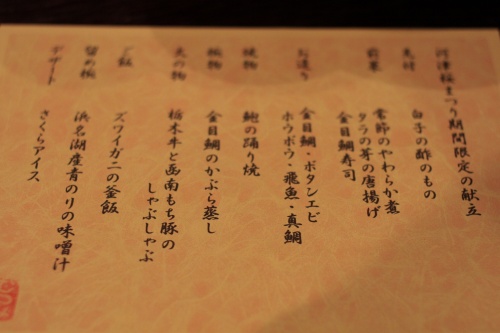 河津桜まつり期間限定の献立
先付 白子の酢のもの
前菜 常節のやわらか煮
タラの芽の唐揚げ
金目鯛寿司
お造り 金目鯛・ボタンエビ
ホウボウ・飛魚・真鯛
焼物 鮑の踊り焼
椀物 金目鯛のかぶら蒸し
火の物 栃木牛と函南もち豚の
しゃぶしゃぶ
ご飯 ズワイガニの釜飯
留め椀 浜名湖産青のりの味噌汁
デザート さくらアイス